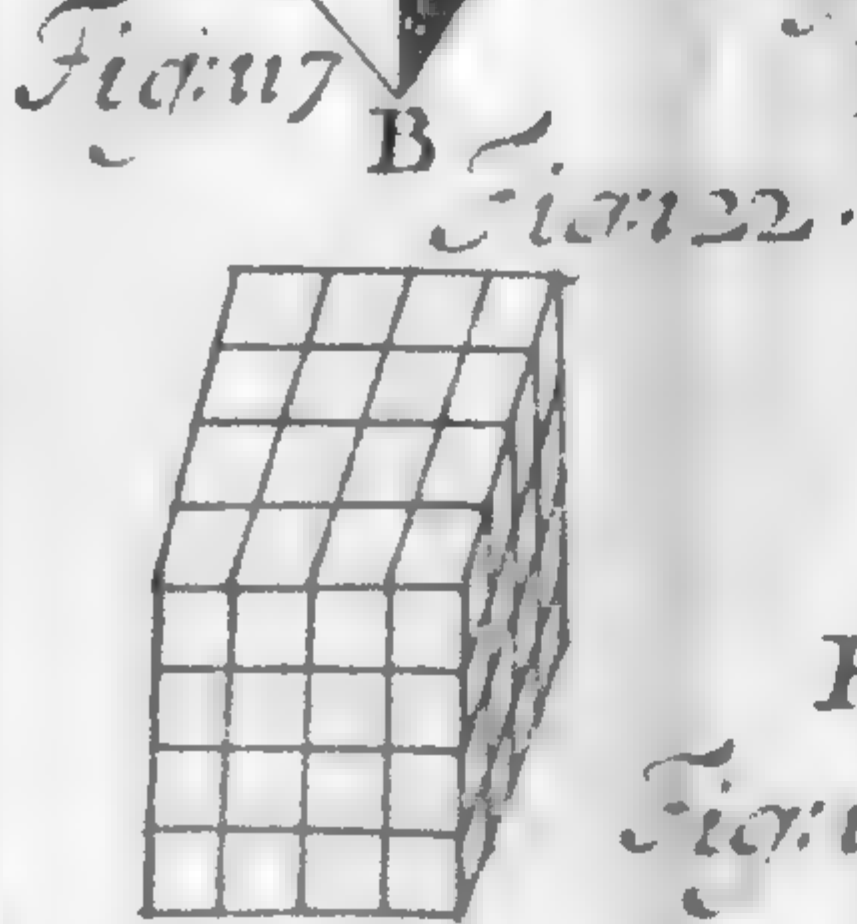 Fig: 117
B
Fig: 122.
Fig: